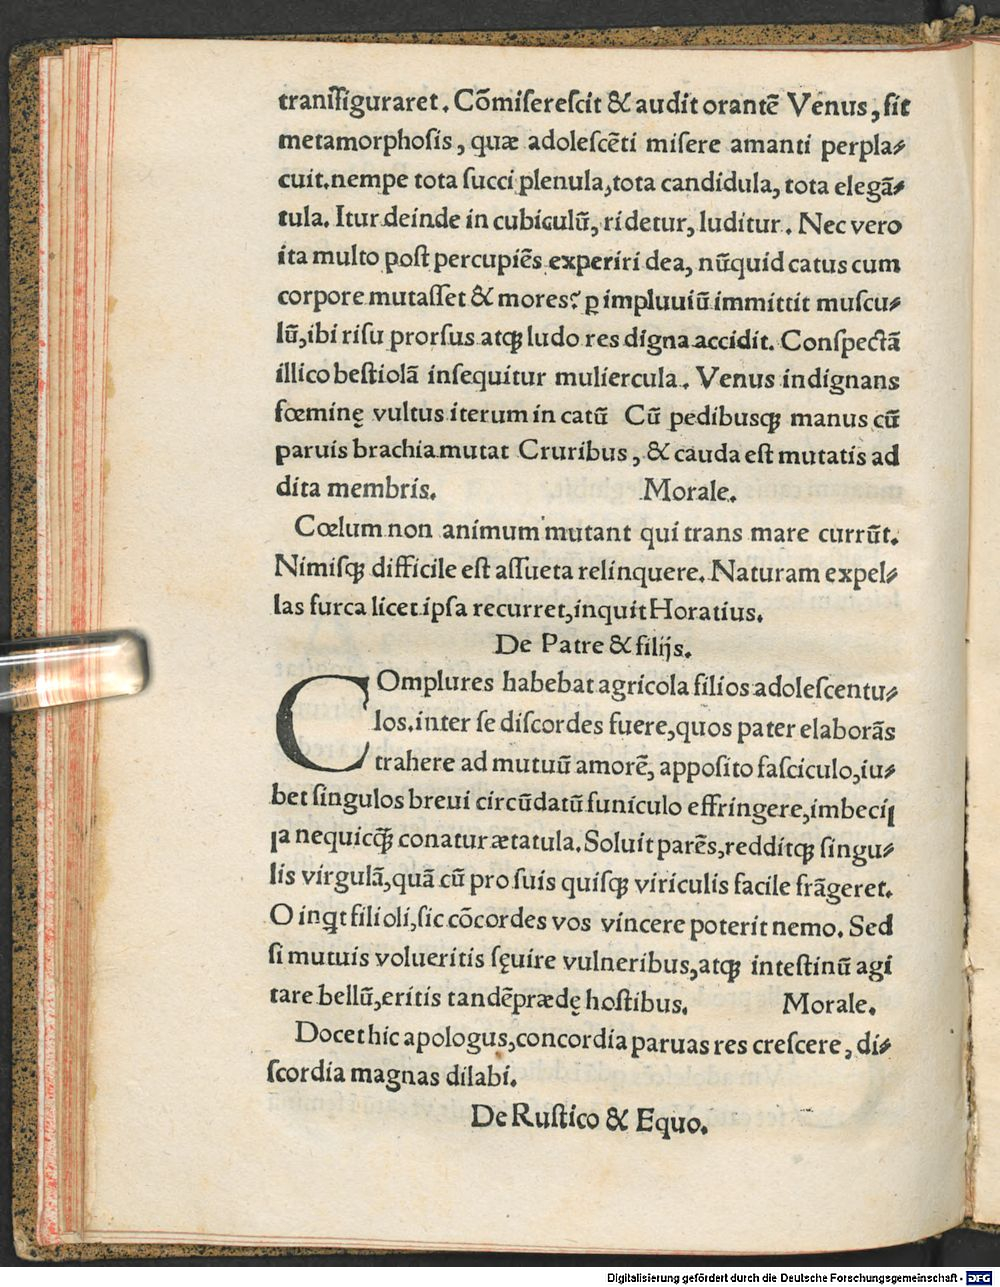 tranſfiguraret. Cōmiſereſcit & audit orantē Venus, ſit
metamorphoſis, quæ adoleſcēti miſere amanti perpla⸗
cuit.nempe tota ſucci plenula,tota candidula, tota elegā⸗
tula. Itur deinde in cubiculū, ridetur, luditur. Nec vero
ita multo poſt percupiēs experiri dea, nūquid catus cum
corpore mutaſſet & mores? ꝑ impluuiū immittit muſcu⸗
lū,ibi riſu prorſus atqꝫ ludo res digna accidit. Conſpectā
illico beſtiolā inſequitur muliercula. Venus indignans
fœminę vultus iterum in catū Cū pedibusqꝫ manus cū
paruis brachia mutat Cruribus, & cauda eſt mutatis ad
dita membris. Morale.
Cœlum non animum mutant qui trans mare currūt.
Nimiſqꝫ difficile eſt aſſueta relinquere. Naturam expel⸗
las furca licet ipſa recurret,inquit Horatius.
De Patre & filijs.
COmplures habebat agricola filios adoleſcentu⸗
los.inter ſe diſcordes fuere,quos pater elaborās
trahere ad mutuū amorē, appoſito faſciculo,iu⸗
bet ſingulos breui circūdatū funiculo effringere,imbecil
la nequicꝗ̄ conatur ætatula. Soluit parēs,redditqꝫ ſingu⸗
lis virgulā,quā cū pro ſuis quiſqꝫ viriculis facile frāgeret.
O inꝗt filioli,ſic cōcordes vos vincere poterit nemo. Sed
ſi mutuis volueritis ſęuire vulneribus,atqꝫ inteſtinū agi
tare bellū,eritis tandē prædę hoſtibus. Morale.
Docet hic apologus,concordia paruas res creſcere, di⸗
ſcordia magnas dilabi.
De Ruſtico & Equo.
Digitalisierung gefördert durch die Deutsche Forschungsgemeinschaft - DFG